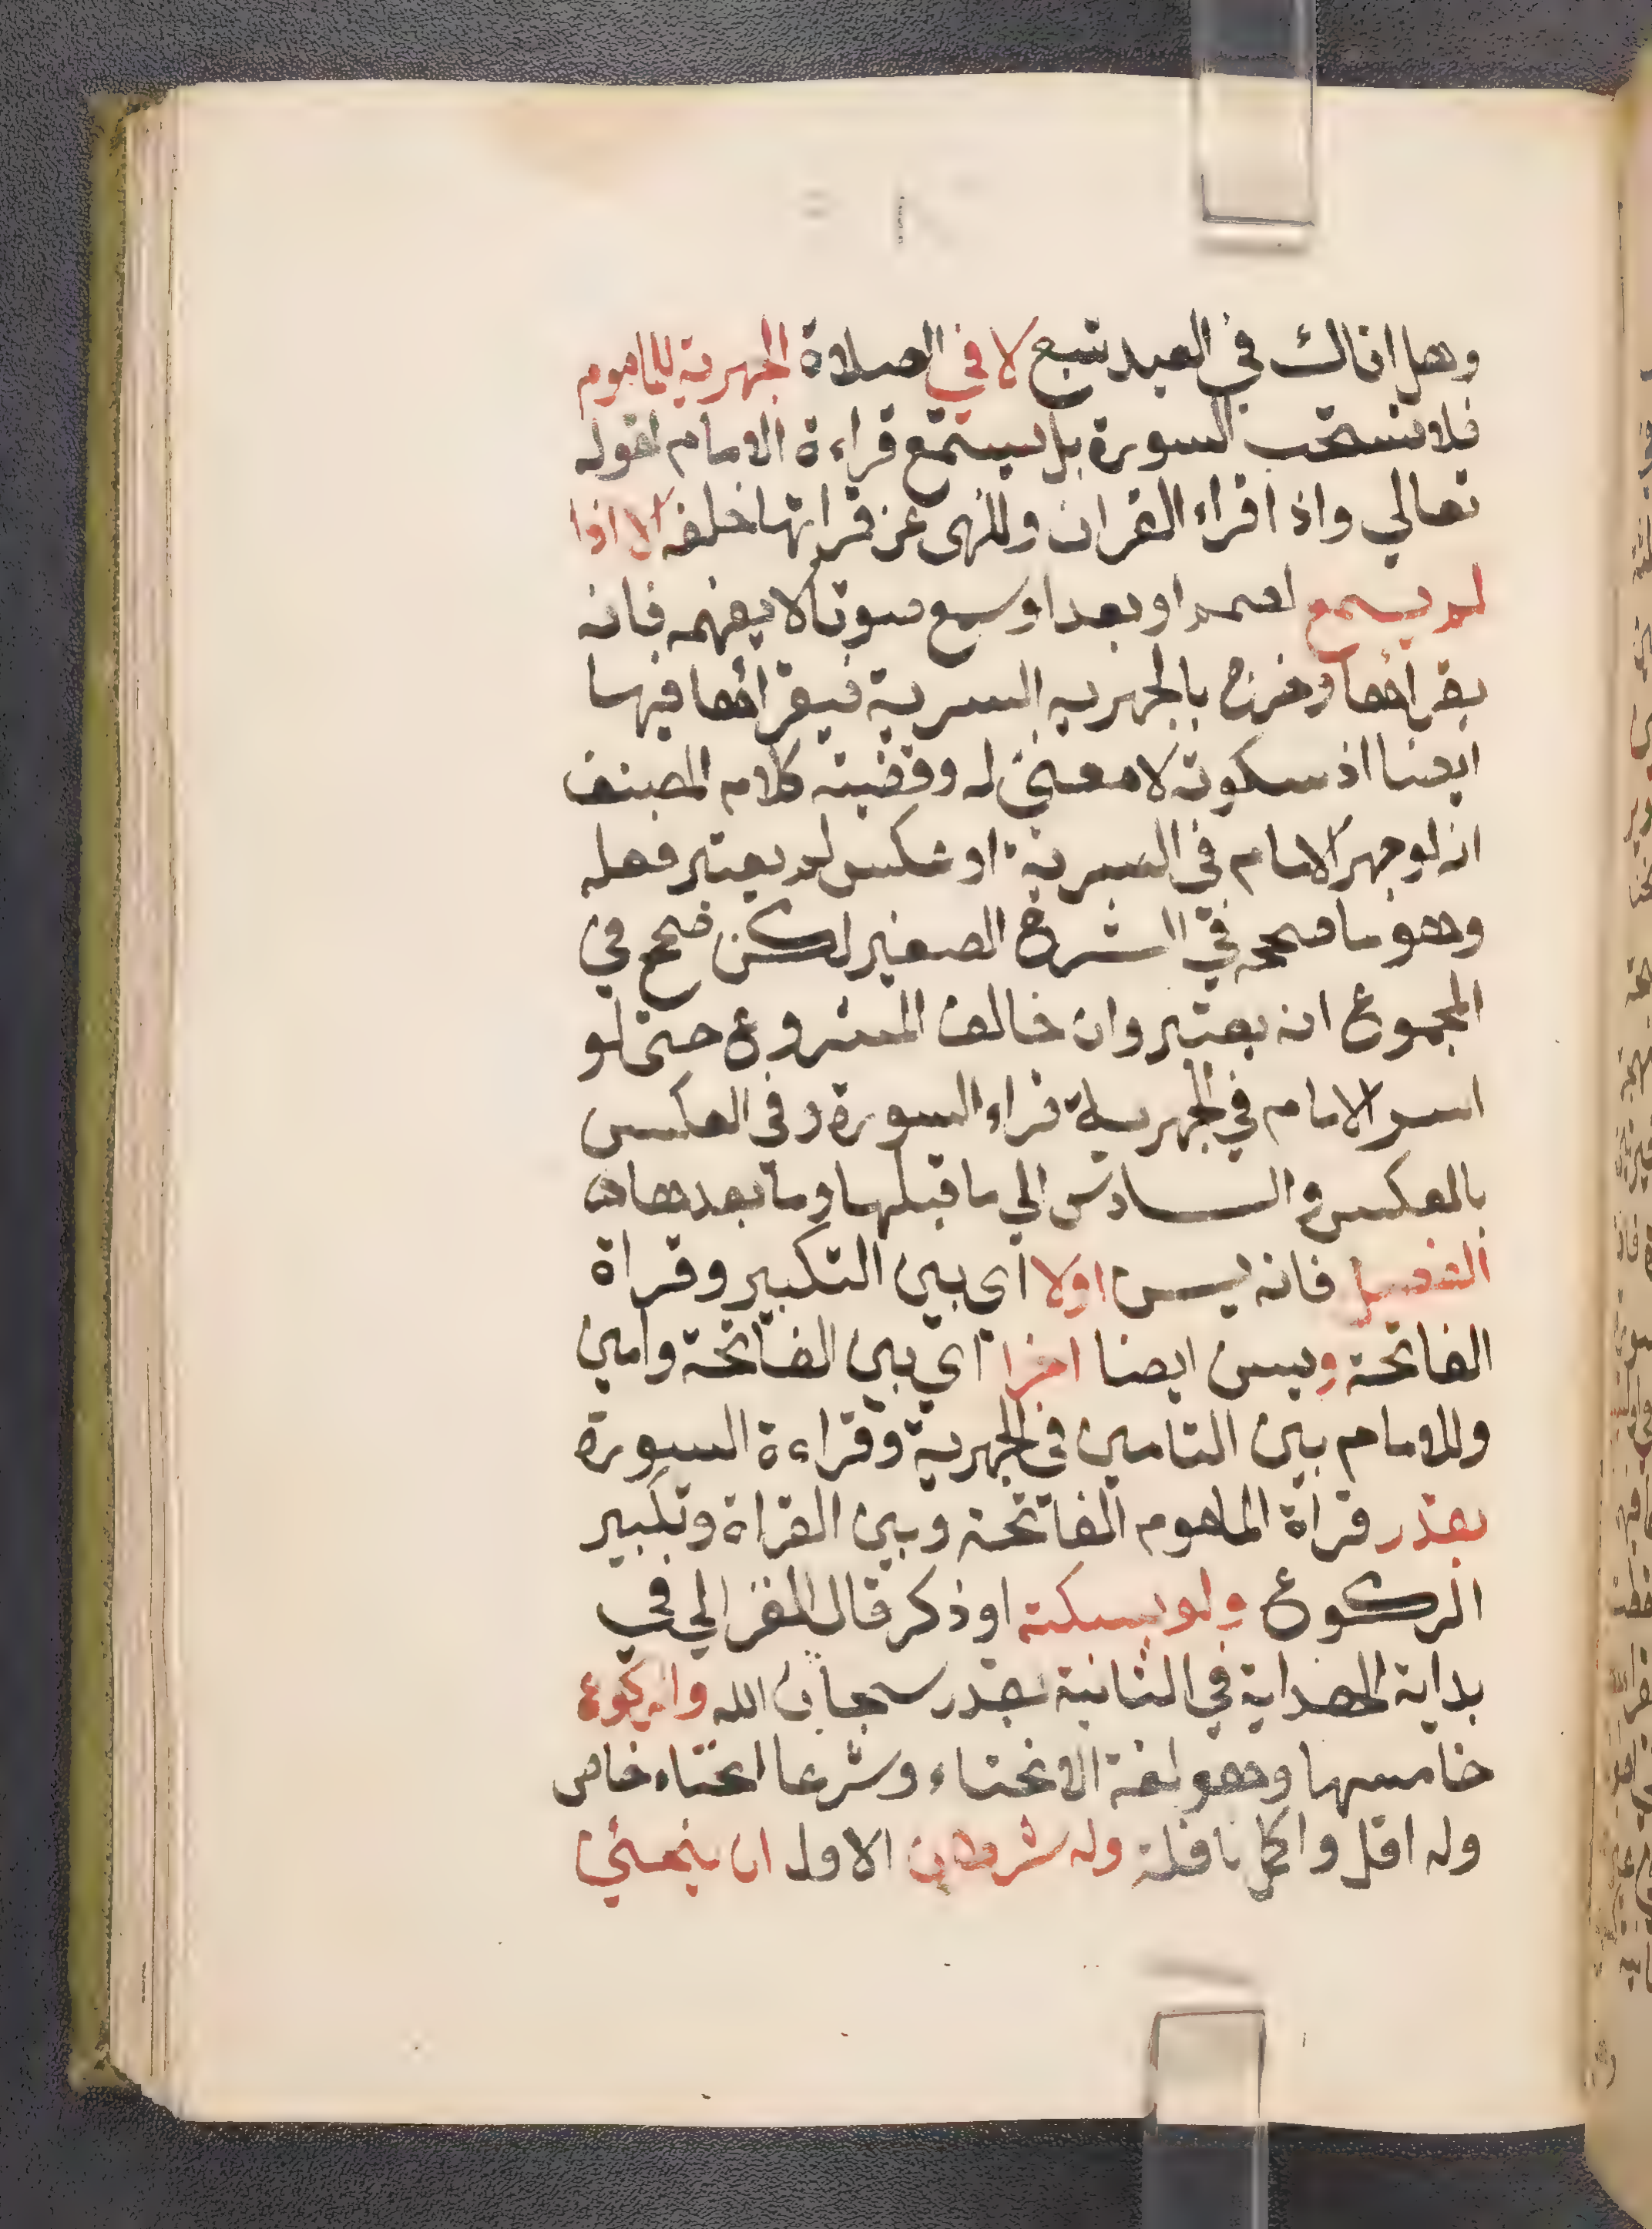 وهل اتاك في العيد تتبع لا في الصلاة الجهرية للماموم
فلا تستحب السورة بل يستمع قراءة الامام لقوله
تعالي واذا قراء القران وللنهى عن قراتها خلفه الا اذا
لم يسمع لصمم او بعد او سمع صوتا لا يفهمه فانه
يقراها وخرج بالجهريه السرية فيقراها فيها
ايضا اذ سكوته لا معنى له وقضيته كلام المصنف
انه لو جهر الامام في السرية او عكس لم يعتبر فعله
وهو ما صححه في الشرح الصغير لكن صحح في
المجموع انه يعتبر وان خالف المشروع حتى لو
اسر الامام في الجهرية قراء السورة وفي العكس
بالعكس والسادس الي ما قبلها وما بعدها
الفصل فانه يسن اولا اي بين التكبير وقراة
الفاتحة ويسن ايضا اخرا اي بين الفاتحة وامين
وللامام بين التامين في الجهرية وقراءة السورة
بقدر قراة الماموم الفاتحة وبين القراة وتكبير
الركوع ولو بسكتة او ذكر قال الغزالي في
بداية الهداية في الثانية بقدر سبحان الله والركوع
خامسها وهو لغة الانحناء وشرعا انحناء خاص
وله اقل واكمل فاقله وله شرطان الاول ان ينحني